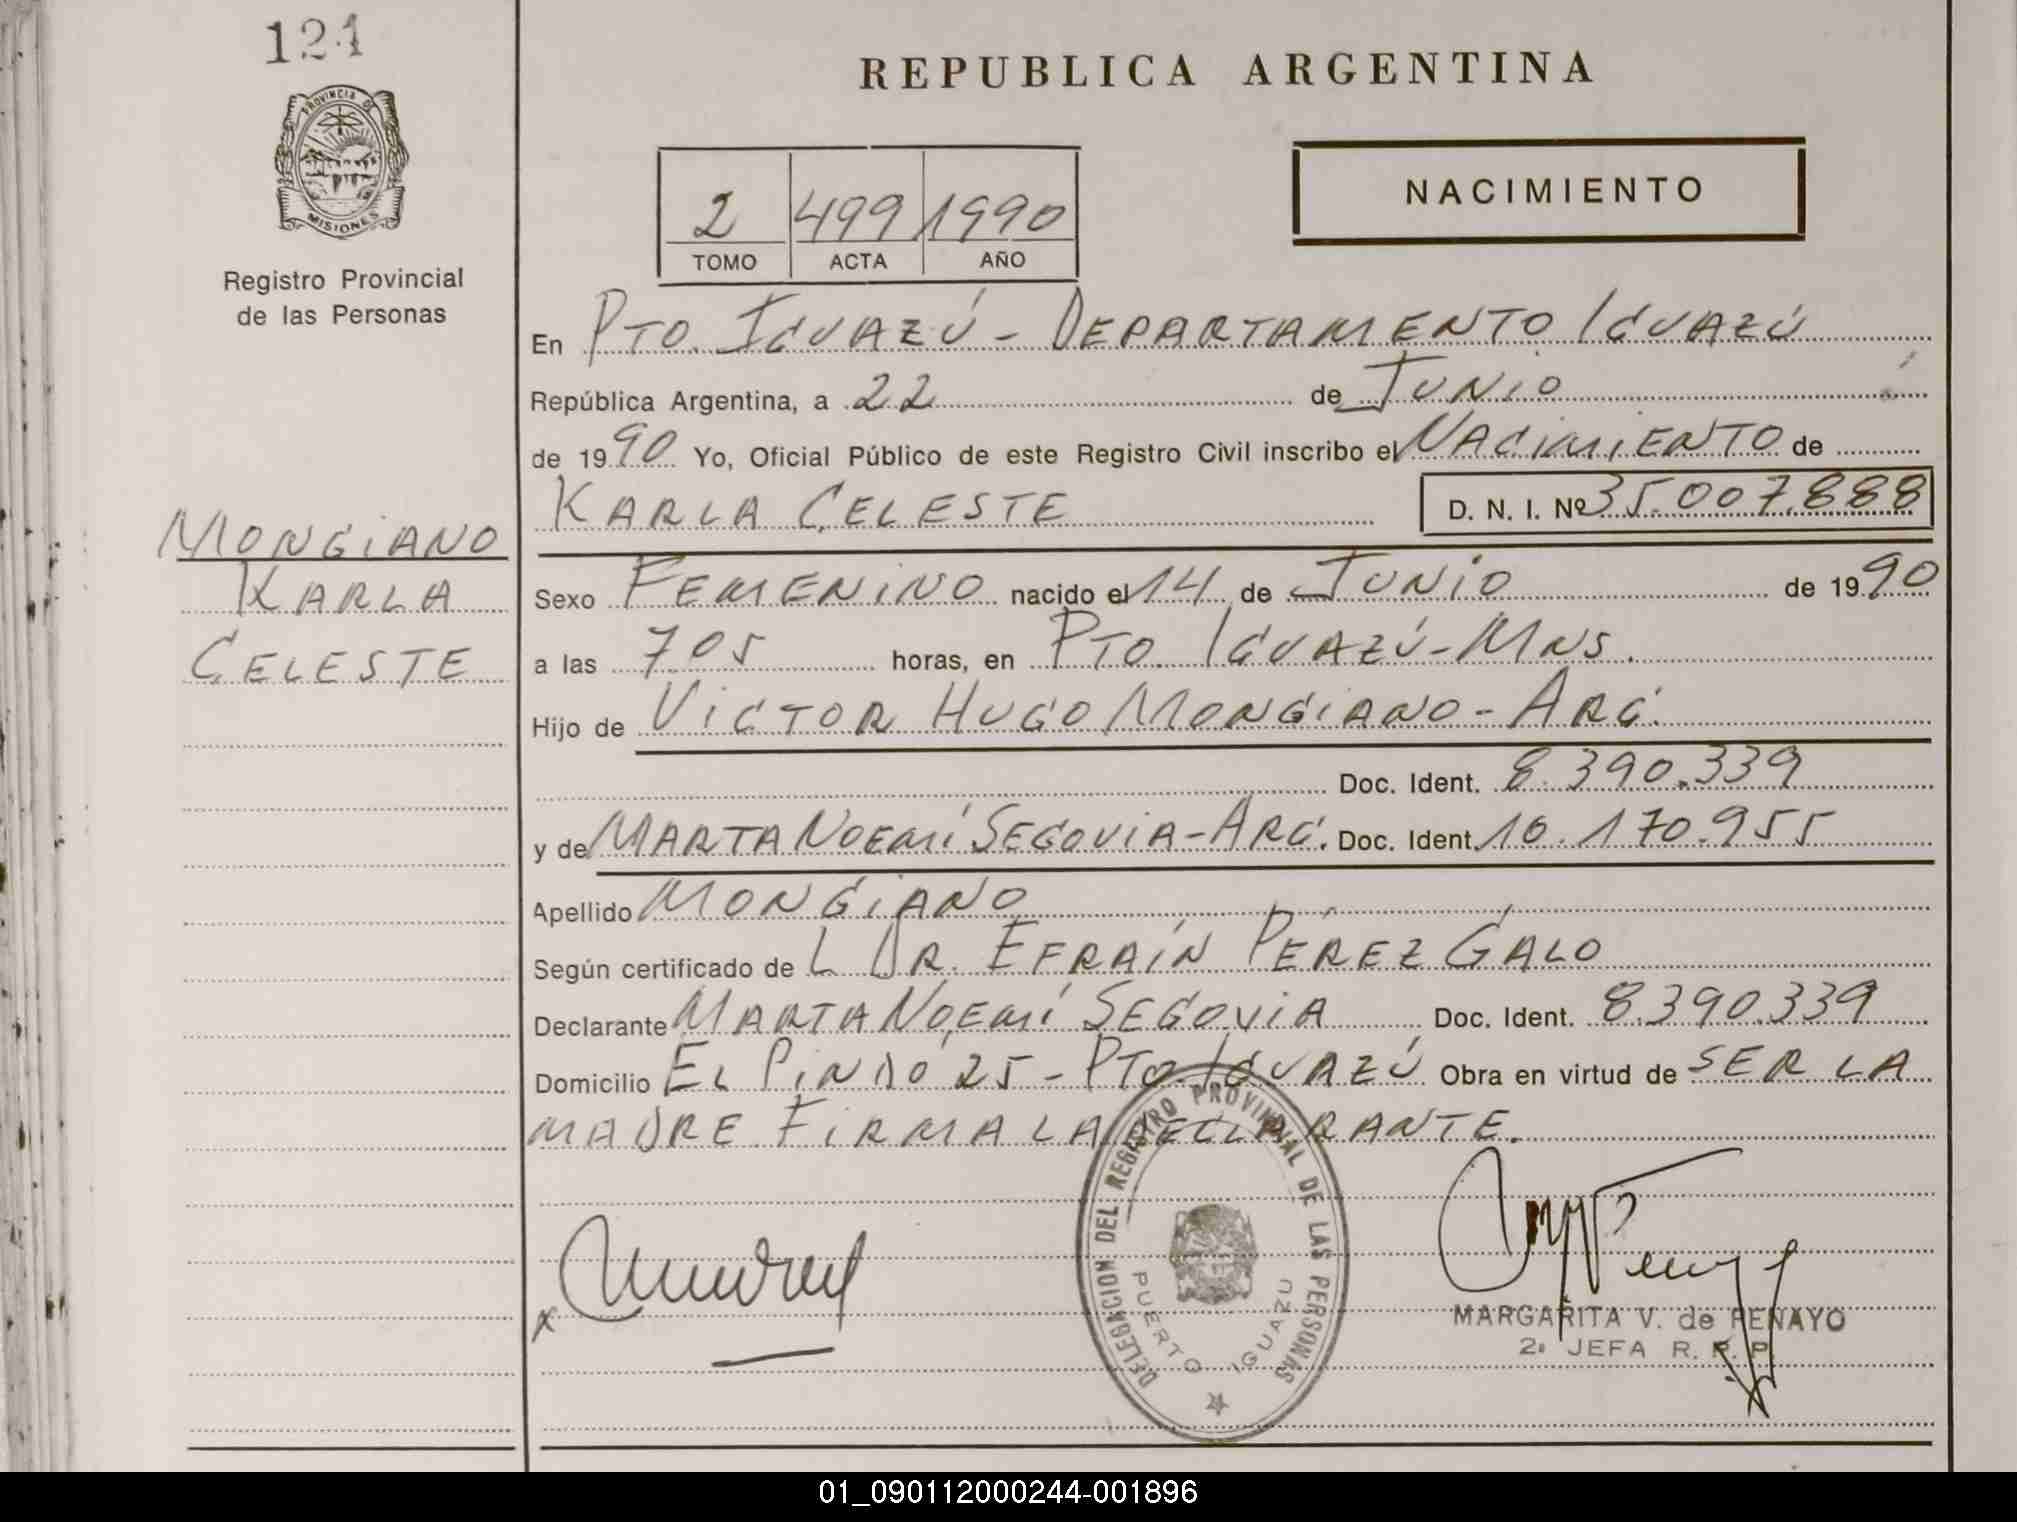 121
PROVINCIA DE
MISIONES
Registro Provincial
de las Personas
MONGIANO
KARLA
CELESTE
REPUBLICA ARGENTINA
2 499 1990
TOMO ACTA AÑO
NACIMIENTO
En PTO. IGUAZÚ - DEPARTAMENTO IGUAZÚ
República Argentina, a 22 de JUNIO
de 1990 Yo, Oficial Público de este Registro Civil inscribo el NACIMIENTO de
KARLA CELESTE D. N. I. Nº 35.007.888
Sexo FEMENINO nacido el 14 de JUNIO de 1990
a las 705 horas, en PTO. IGUAZÚ - MNS.
Hijo de VICTOR HUGO MONGIANO - ARG.
Doc. Ident. 8.390.339
y de MARTA NOEMÍ SEGOVIA - ARG. Doc. Ident. 10.170.955
Apellido MONGIANO
Según certificado de L DR. EFRAÍN PÉREZ GALO
Declarante MARTA NOEMÍ SEGOVIA Doc. Ident. 8.390.339
Domicilio EL PINDÓ 25 - PTO. IGUAZÚ Obra en virtud de SER LA
MADRE FIRMA LA DECLARANTE.
DELEGACION DEL REGISTRO PROVINCIAL DE LAS PERSONAS
PUERTO IGUAZU
x
MARGARITA V. de PENAYO
2ª JEFA R. P. P.
01_090112000244-001896